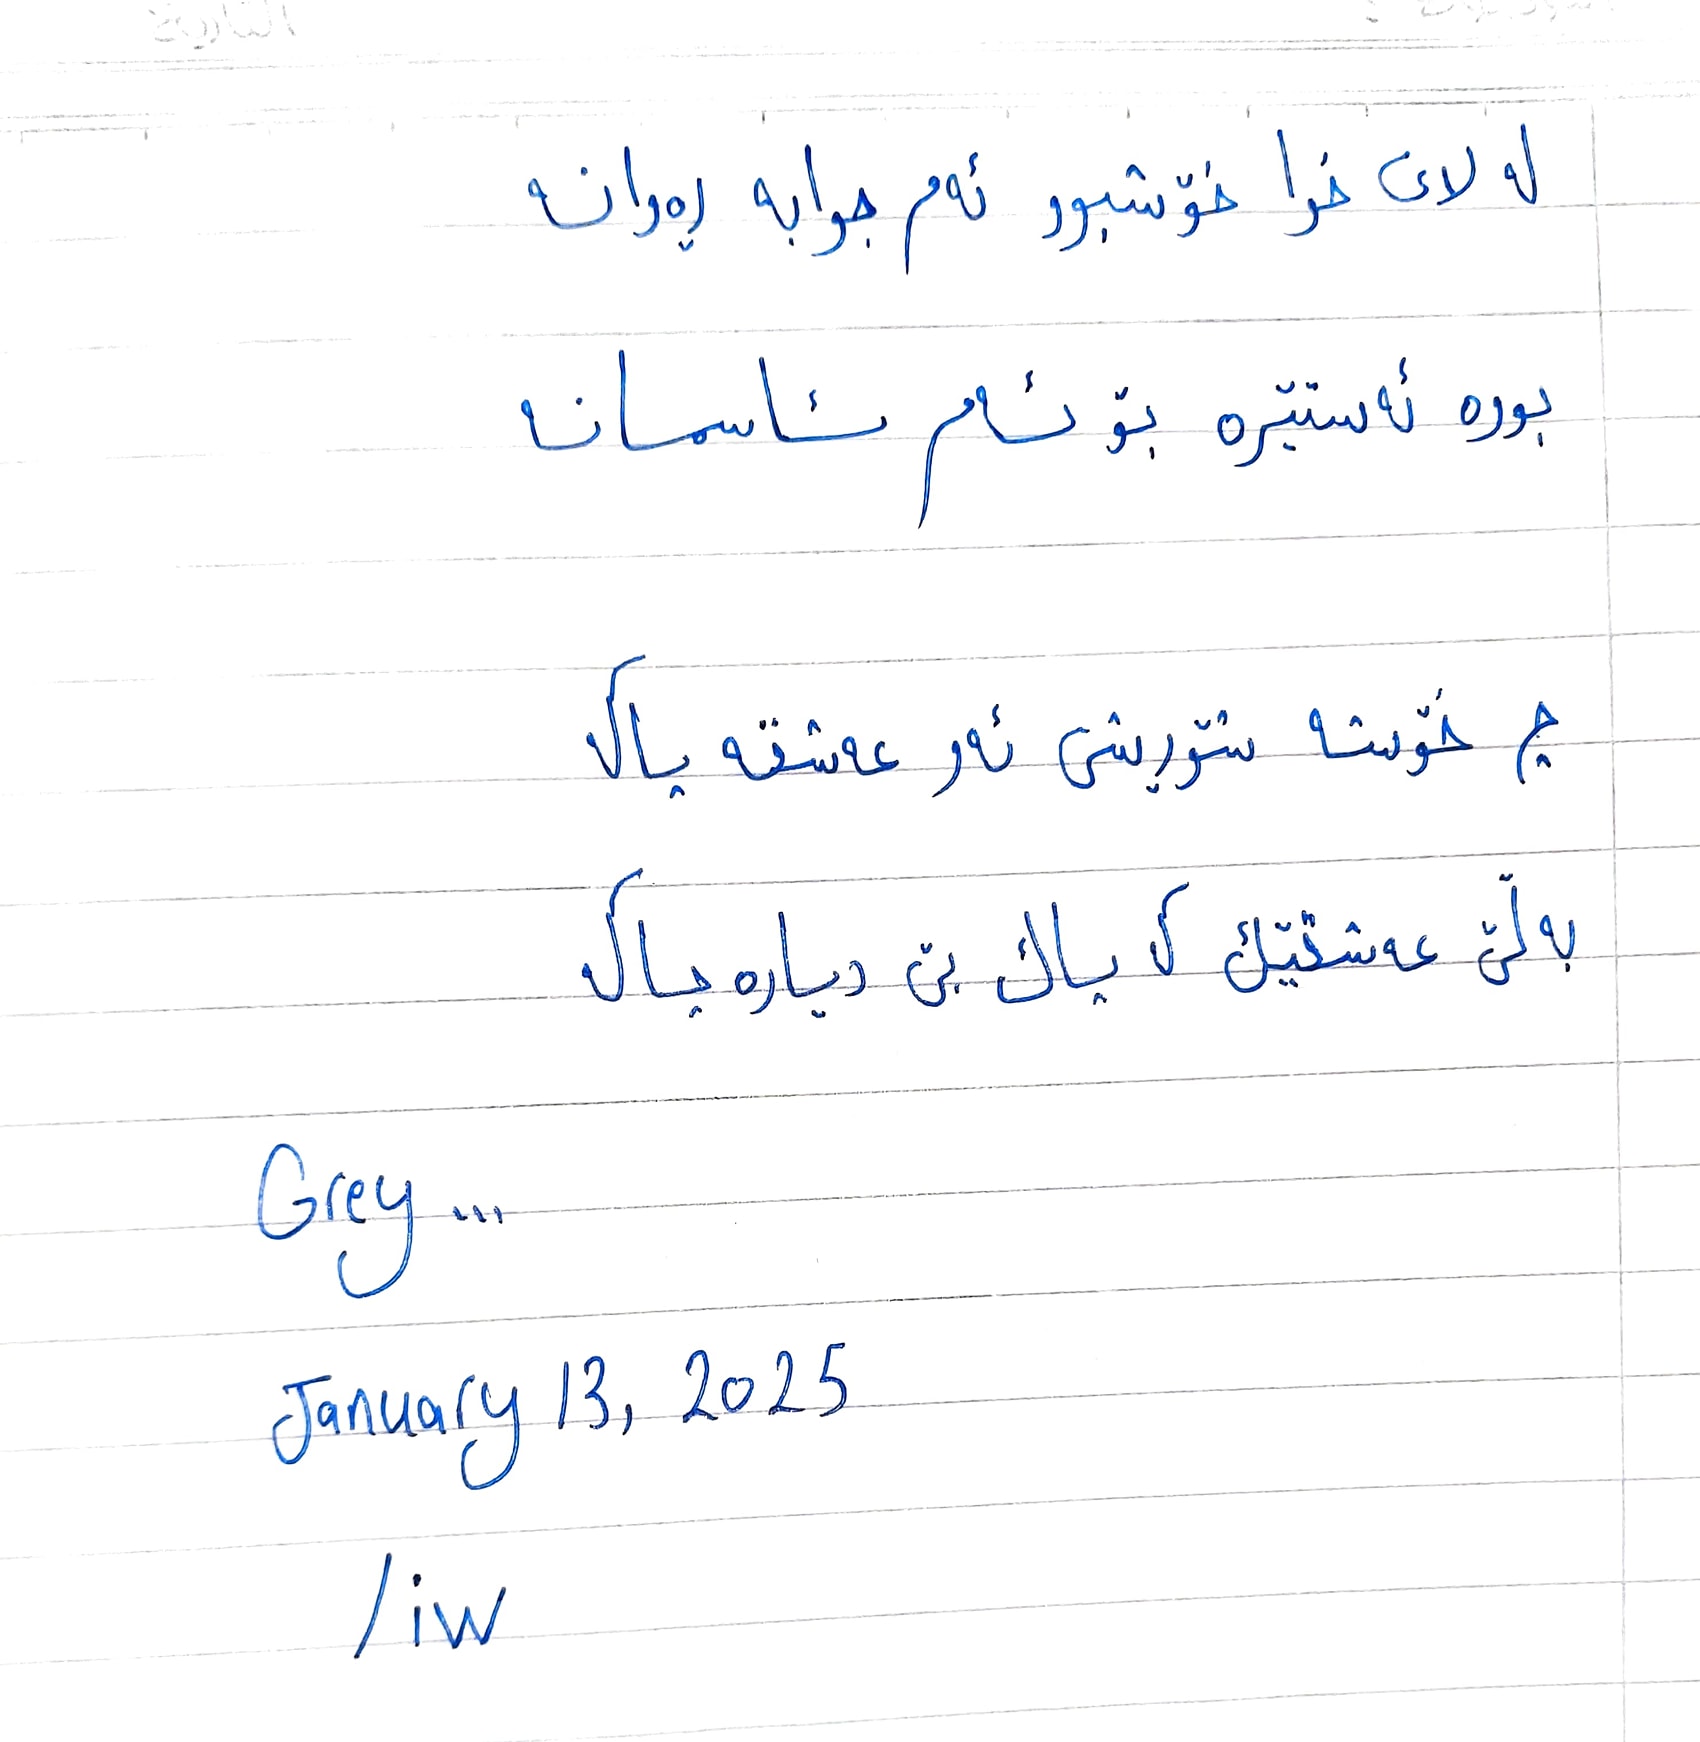 التاريخ
لە لای خوا خۆشبوو ئەم جوابە ڕەوانە
بووە ئەستێرە بۆ ئەم ئاسمانە
چ خۆشە شۆڕشی ئەو عەشقە پاکە
بەڵێ عەشقێک کە پاک بێ دیارە چاکە
Grey...
January 13, 2025
/iw